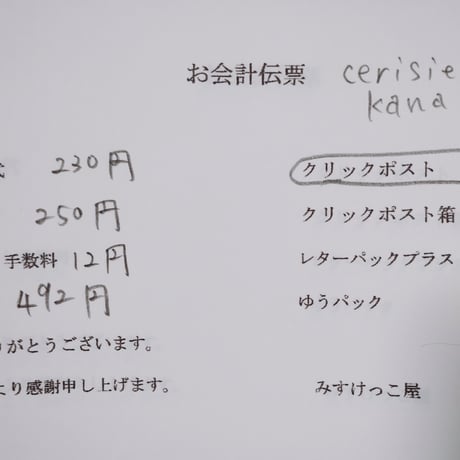 お会計伝票 cerisie
kana
230円
クリックポスト
250円
クリックポスト箱
手数料 12円
レターパックプラス
492円
ゆうパック
りがとうございます。
より感謝申し上げます。
みすけっこ屋